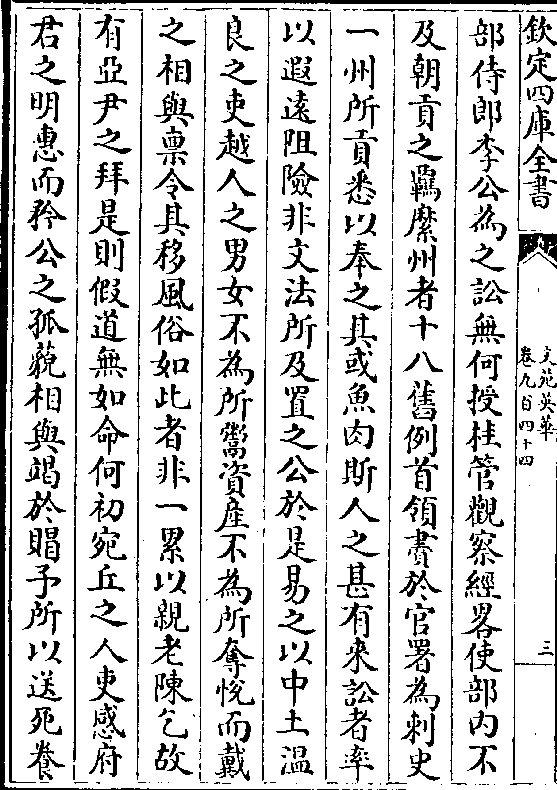 欽定四庫全書
文苑英華
卷九百四十四
三
部侍郎李公為之訟無何授桂管觀察經畧使部内不
及朝貢之羈縻州者十八舊例首領賫於官署為刺史
一州所貢悉以奉之其或魚肉斯人之甚有來訟者率
以遐遠阻險非文法所及置之公於是易之以中土温
良之吏越人之男女不為所鬻資産不為所奪悅而戴
之相與禀令其移風俗如此者非一累以親老陳乞故
有亞尹之拜是則假道無如命何初宛丘之人吏感府
君之明惠而矜公之孤藐相與竭於賵予所以送死養